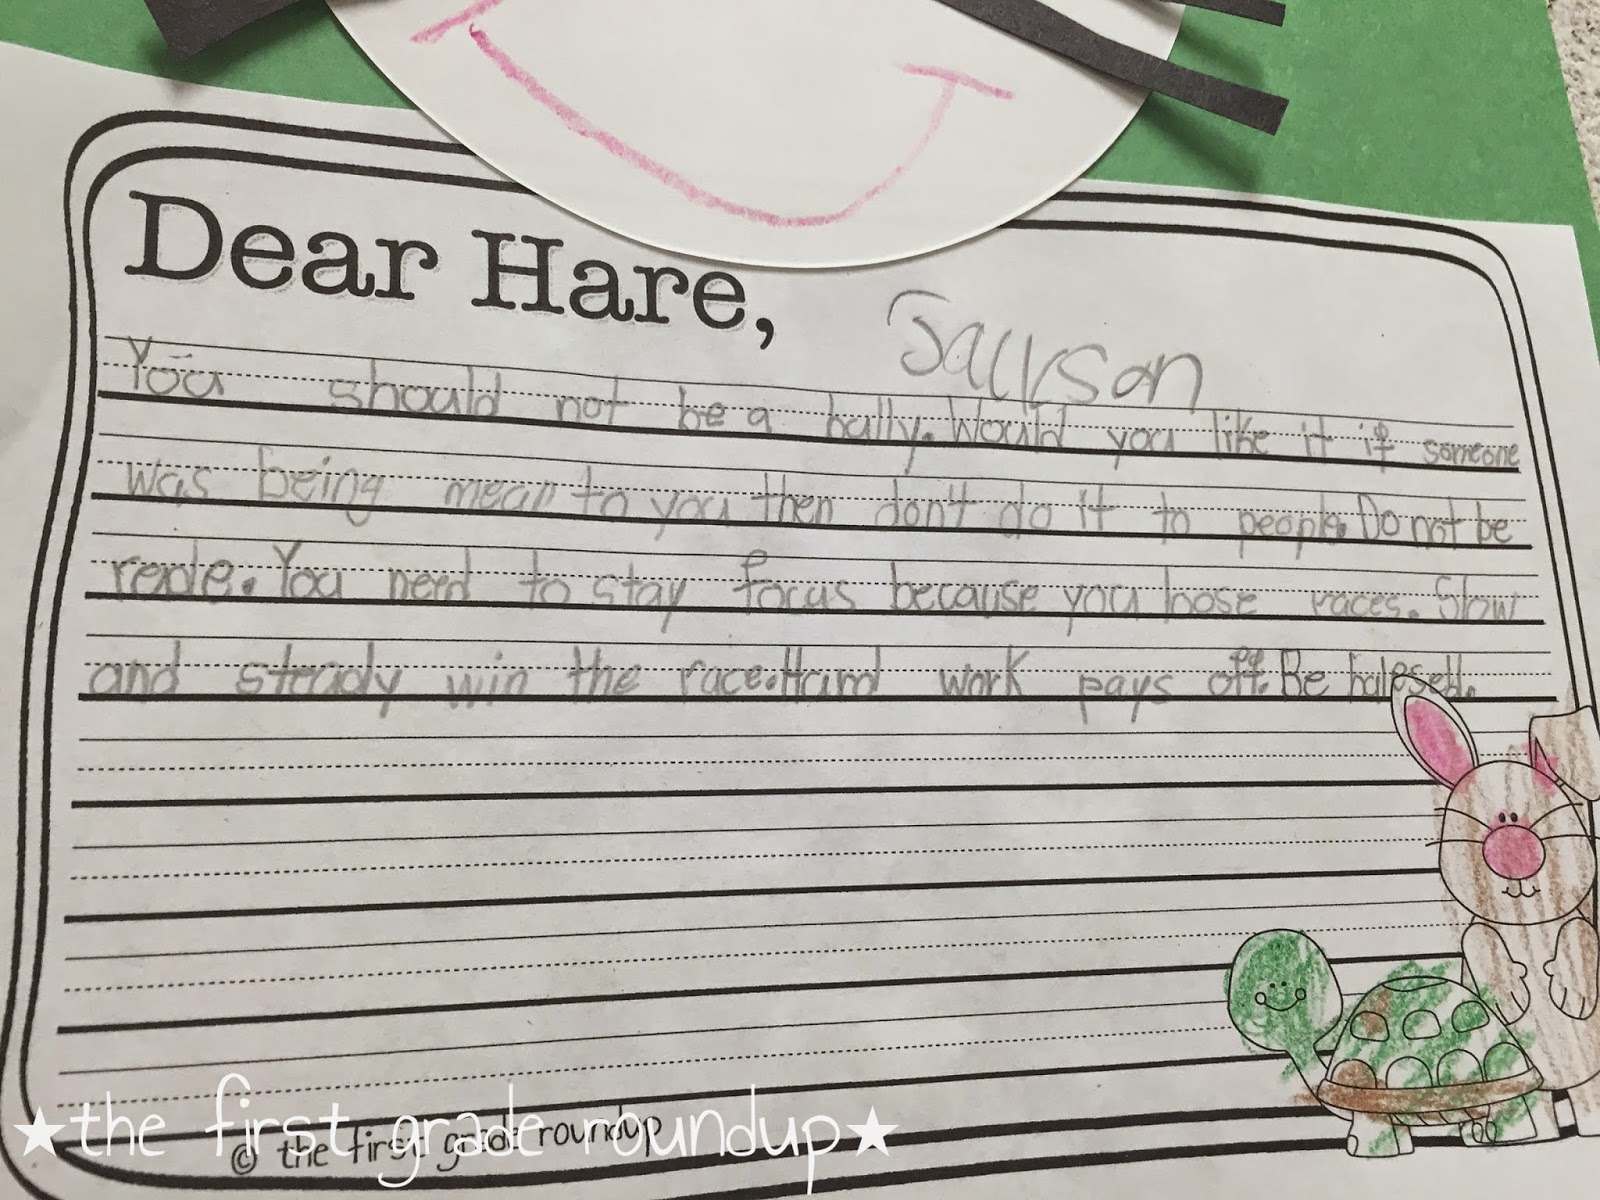 Dear Hare,
Jackson
You should not be a bully. Would you like it if someone
was being mean to you then don't do it to people. Do not be
reude. You need to stay focus because you loose races. Slow
and steady win the race. Hard work pays off. Be
★the first grade roundup★
© the first grade roundup